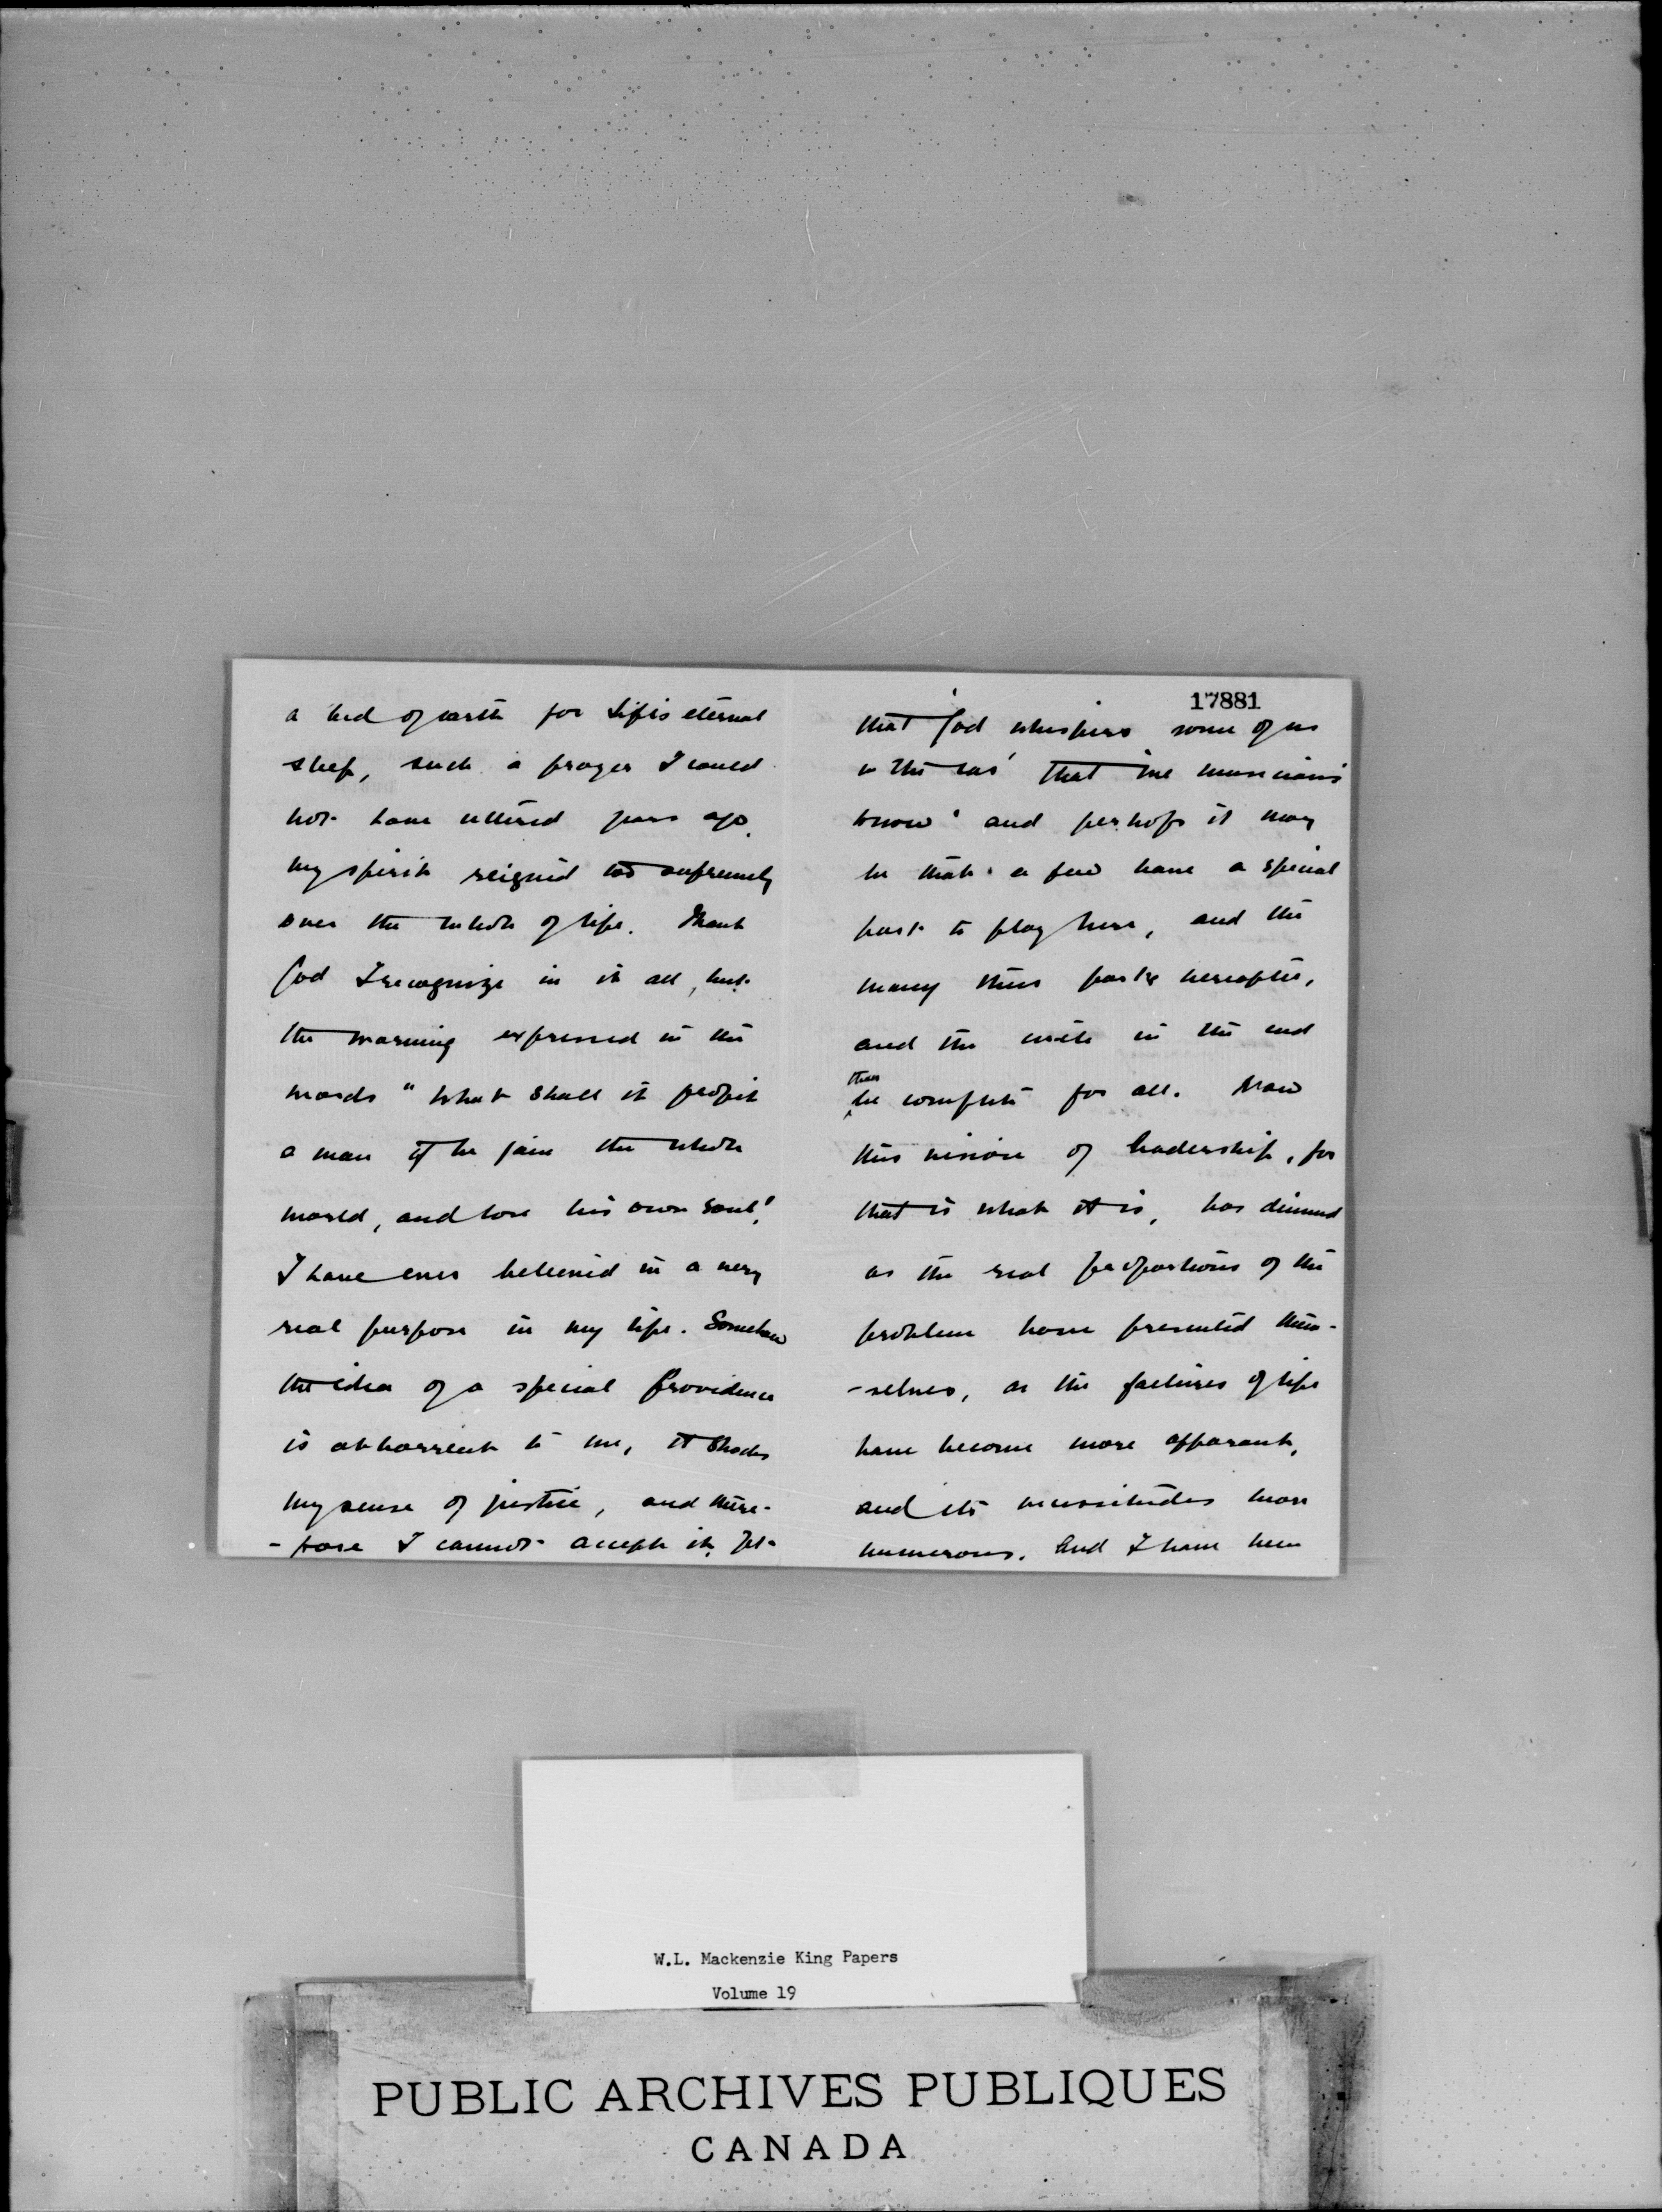 a bed of earth for life's eternal
sleep, such a prayer I could
not have uttered years ago.
My spirit reigned too supremely
over the whole of life. Thank
God I recognize in it all, but
the warning expressed in the
words "What shall it profit
a man if he gain the whole
world, and lose his own soul!
I have ever believed in a very
real purpose in my life. Somehow
the idea of a special Providence
is abhorrent to me, it shocks
my sense of justice, and there-
-fore I cannot accept it. Yet
17881
that 'God whispers some of us
in the ear' that 'the musicians
know' and perhaps it may
be that a few have a special
part to play here, and the
many their parts hereafter,
and the in the end
then
be complete for all. Now
this vision of leadership, for
that is what it is, has dimmed
as the real proportions of the
problem have presented them-
-selves, as the failures of life
have become more apparent,
and its vicissitudes more
numerous. And I have been
W.L. Mackenzie King Papers
Volume 19
PUBLIC ARCHIVES PUBLIQUES
CANADA